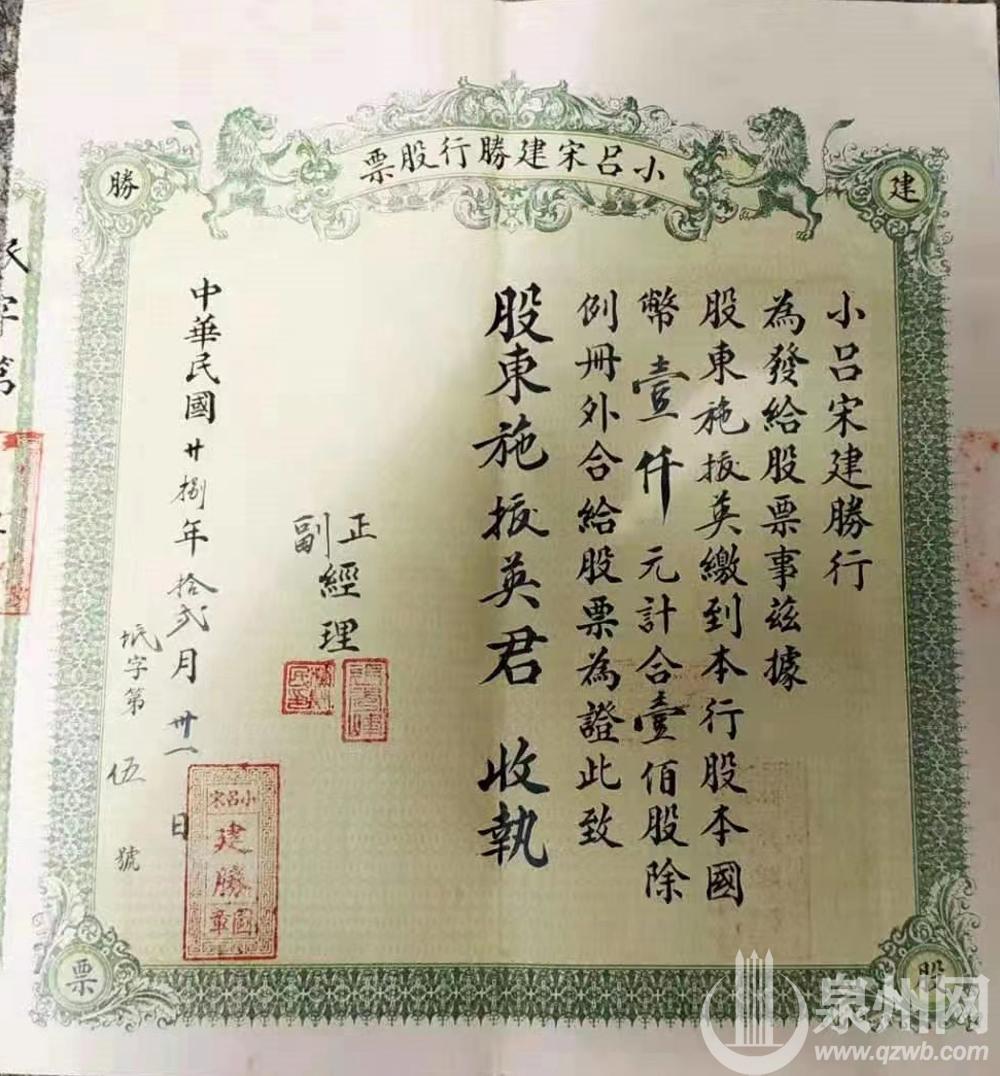 小呂宋建勝行股票
建
勝
股
票
小呂宋建勝行
為發給股票事茲據
股東施振英繳到本行股本國
幣壹仟元計合壹佰股除
例冊外合給股票為證此致
股東施振英君 收執
正
副
經理
中華民國廿捌年拾弍月卅一日
字第伍號
小呂宋
建勝
圖章
字第
泉州网
www.qzwb.com